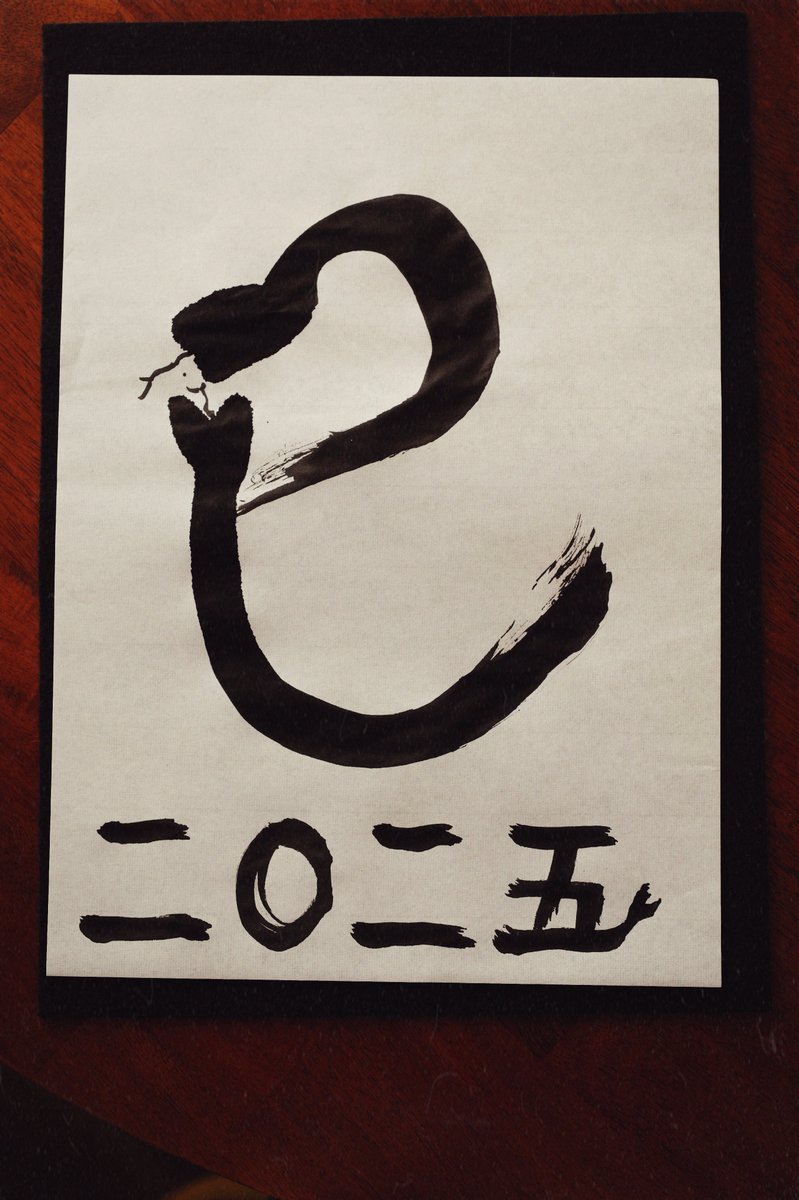 巳
二〇二五